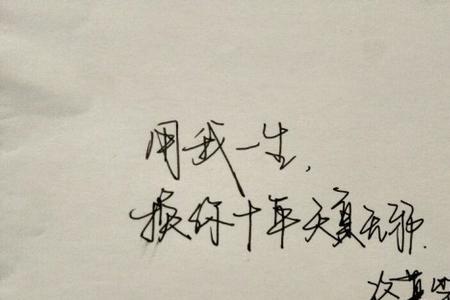 用我一生,
换你十年天真无邪.